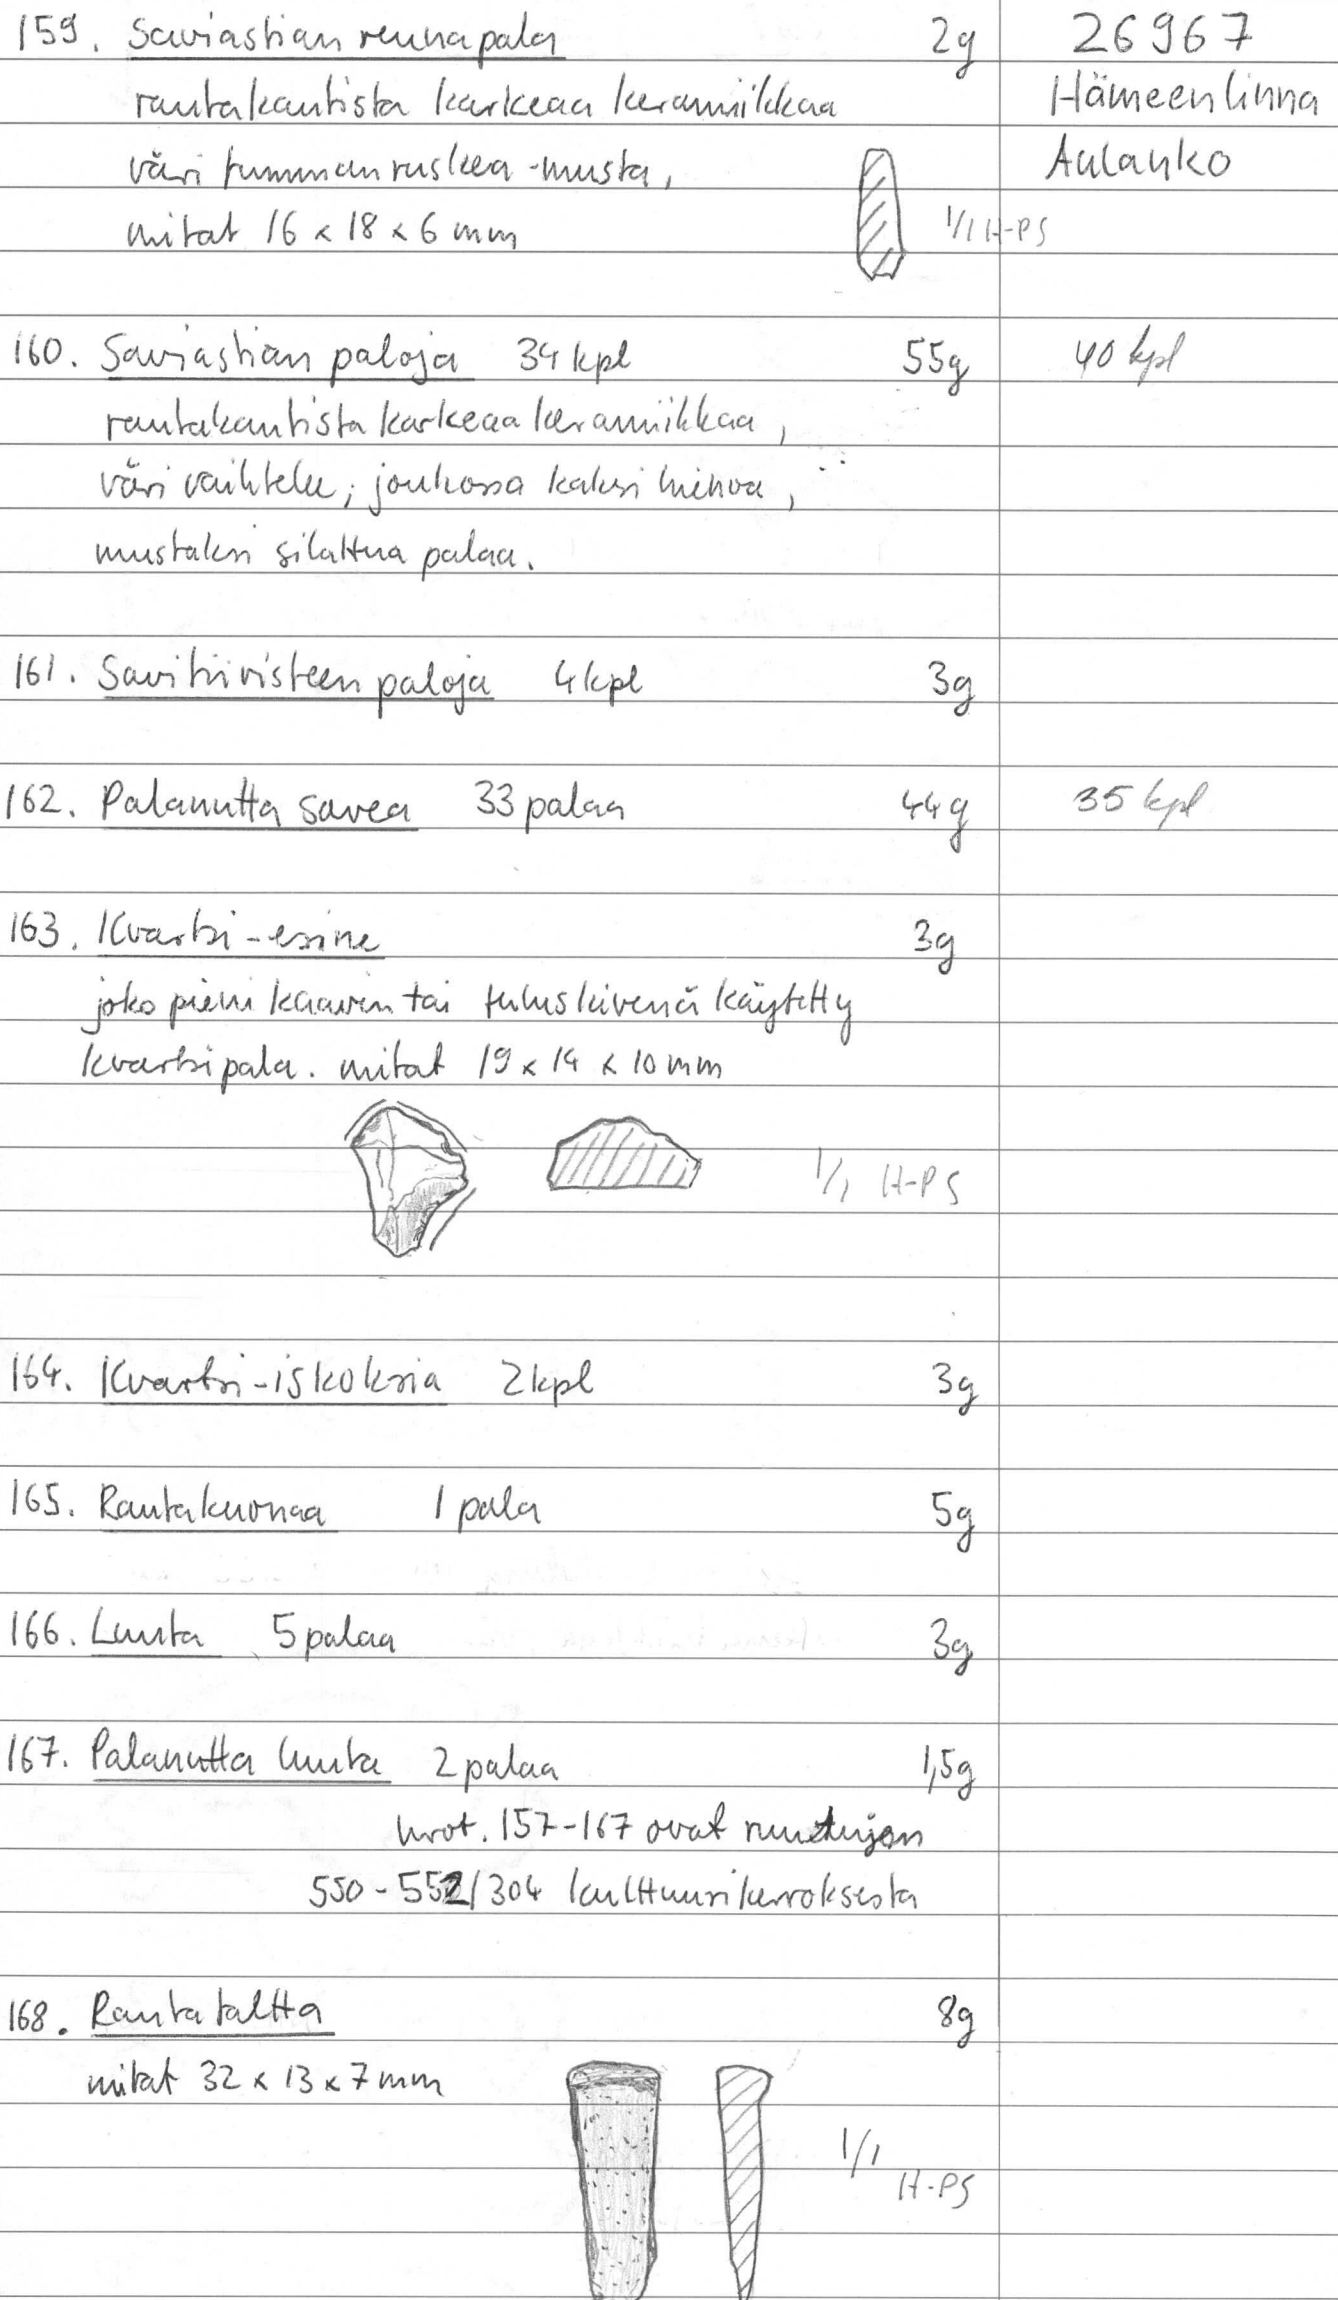 159. Saviastian reunapala 2g 26967
rautakautista karkeaa keramiikkaa Hämeenlinna
väri tummanruskea-musta, Aulanko
mitat 16 x 18 x 6 mm 1/1 H-PS
160. Saviastian paloja 34 kpl 55g 40 kpl
rautakautista karkeaa keramiikkaa,
väri vaihtelee; joukossa kaksi hienoa,
mustaksi silattua palaa.
161. Savitiivisteen paloja 4 kpl 3g
162. Palanutta savea 33 palaa 44g 35 kpl
163. Kvartsi-esine 3g
joko pieni kaavin tai tuluskivenä käytetty
kvartsipala. mitat 19 x 14 x 10 mm
1/1 H-PS
164. Kvartsi-iskoksia 2 kpl 3g
165. Rautakuonaa 1 pala 5g
166. Luuta 5 palaa 3g
167. Palanutta luuta 2 palaa 1,5g
nrot. 157-167 ovat ruutujen
550-552/304 kulttuurikerroksesta
168. Rautataltta 8g
mitat 32 x 13 x 7 mm
1/1
H-PS